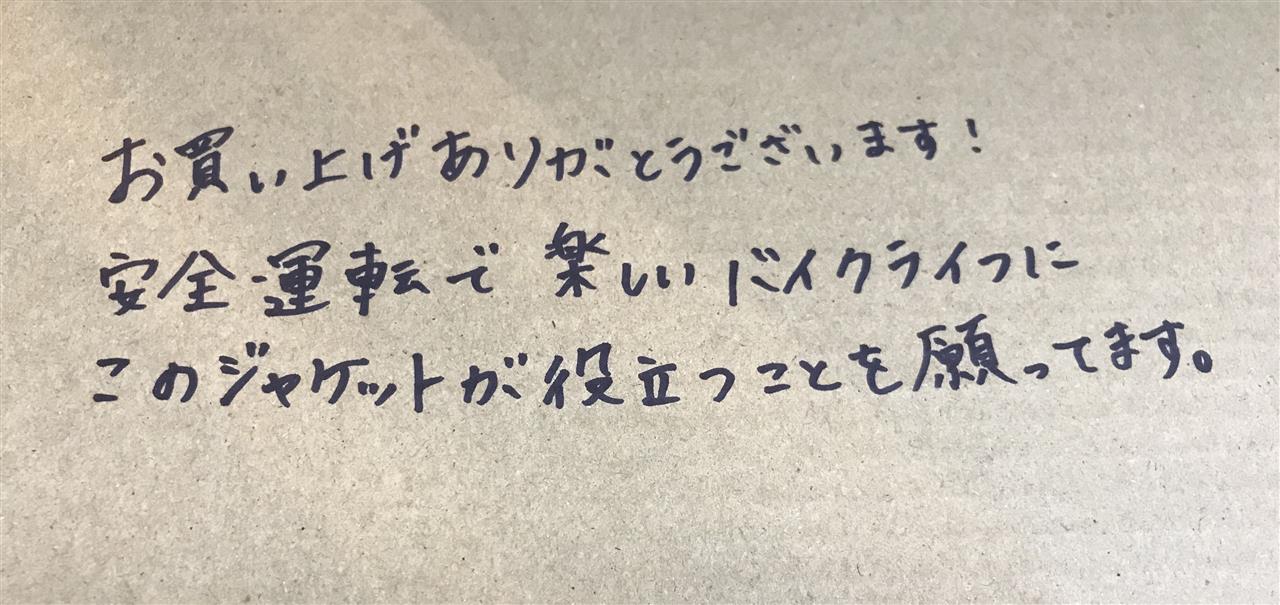 お買い上げありがとうございます!
安全運転で楽しいバイクライフに
このジャケットが役立つことを願ってます。